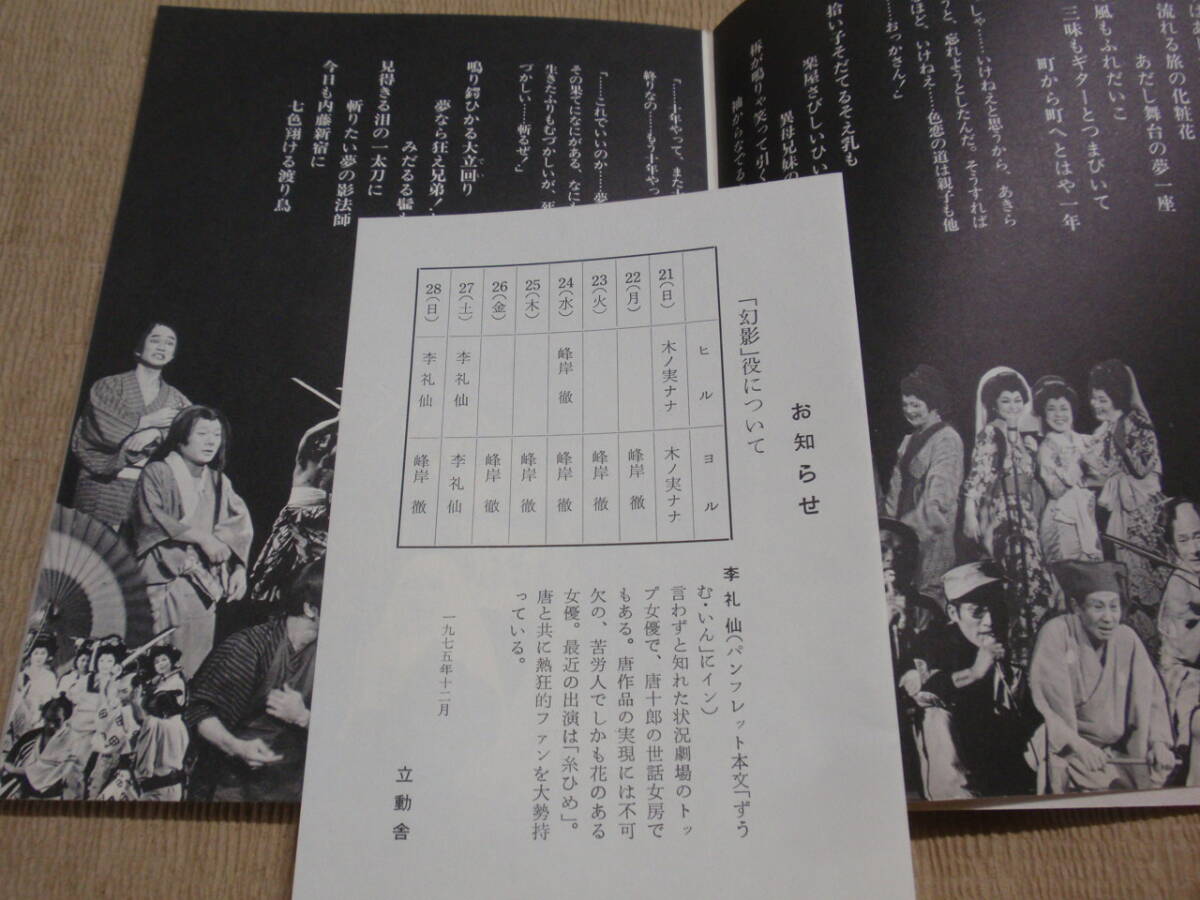 はあ
流れる旅の化粧花
あだし舞台の夢一座
風もふれだいこ
三味もギターとつまびいて
町から町へとはや一年
しゃ……いけねえと思うから、あきら
うと、忘れようとしたんだ。そうすれば
ほど、いけねえ……色恋の道は親子も他
……おっかさん!」
拾い子そだてるそえ乳も
楽屋さびしいひい
異母兄妹の
柝が鳴りゃ笑って引く
袖からなでる
「……十年やって、また十
終りなの……もう十年やっ
「……これでいいのか……夢
その果てになにがある、なにも
生きたふりもむづかしいが、死
づかしい……斬るぜ!」
鳴り鍔ひかる大立回り
でい
夢なら狂え兄弟!
みだるる髷も
見得きる泪の一太刀に
斬りたい夢の影法師
今日も内藤新宿に
七色翔ける渡り鳥
お知らせ
「幻影」役について
ヒル ヨル
21(日) 木ノ実ナナ 木ノ実ナナ
22(月) 峰岸徹
23(火) 峰岸徹
24(水) 峰岸徹 峰岸徹
25(木) 峰岸徹
26(金) 峰岸徹
27(土) 李礼仙 李礼仙
28(日) 李礼仙 峰岸徹
李礼仙(パンフレット本文「ずう
む・いん」にイン)
言わずと知れた状況劇場のトッ
プ女優で、唐十郎の世話女房で
もある。唐作品の実現には不可
欠の、苦労人でしかも花のある
女優。最近の出演は「糸ひめ」。
唐と共に熱狂的ファンを大勢持
っている。
一九七五年十二月
立動舎